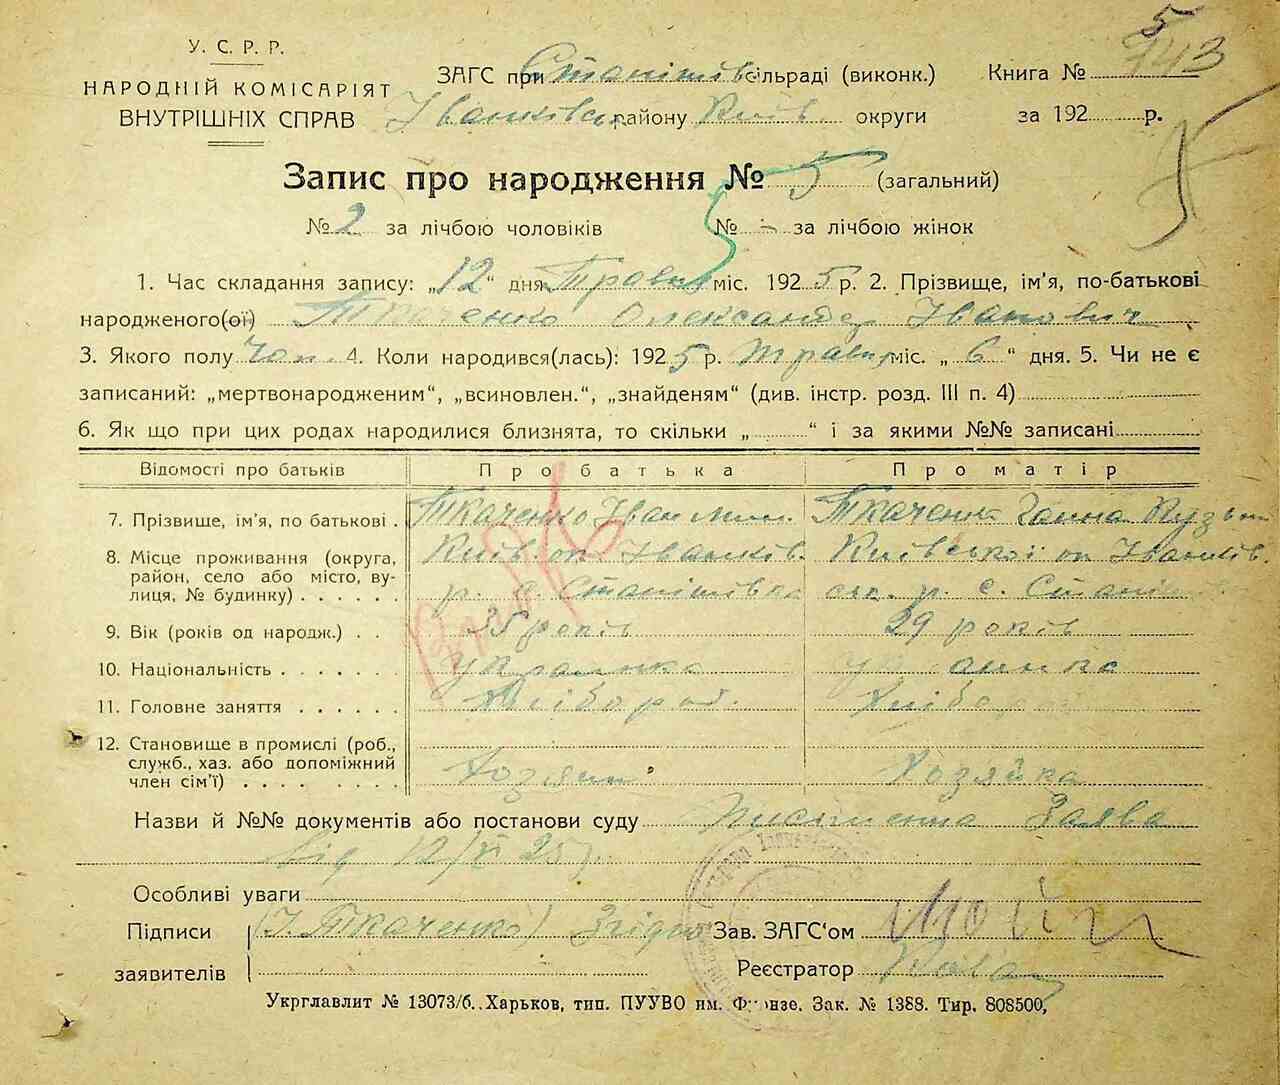 5
743
У. С. Р. Р.
НАРОДНІЙ КОМІСАРІЯТ
ВНУТРІШНІХ СПРАВ
ЗАГС при Станішів сільраді (виконк.) Книга №
Іванківськ району Київ. округи за 192 р.
Запис про народження № 5 (загальний)
№ 2 за лічбою чоловіків № - за лічбою жінок
1. Час складання запису: „12“ дня Травня міс. 1925 р. 2. Прізвище, ім'я, по-батькові
народженого(ої) Ткаченко Олександер Іванович
3. Якого полу Чол. 4. Коли народився(лась): 1925 р. травня міс. „6“ дня. 5. Чи не є
записаний: „мертвонародженим“, „всиновлен.“, „знайденям“ (див. інстр. розд. III п. 4)
6. Як що при цих родах народилися близнята, то скільки „ “ і за якими №№ записані
Відомості про батьків Про батька Про матір
7. Прізвище, ім'я, по батькові . Ткаченко Іван Ткаченк Ганна Кузьм
8. Місце проживання (округа, район, село або місто, вулиця, № будинку) . . . . . . Київ ок Іванків. р. с. Станішівка Київської ок Іванків. ськ. р. с. Станіш
9. Вік (років од народж.) . . 35 років 29 років
10. Національність . . . . . . . українка українка
11. Головне заняття . . . . . . Хлібороб. Хлібо
12. Становище в промислі (роб., служб., хаз. або допоміжний член сім'ї) . . . . . . . . Хозяин Хозяйка
Назви й №№ документів або постанови суду Письменна Заява
від 12/VI 25 р.
Особливі уваги
Підписи (І. Ткаченко) Згідно Зав. ЗАГС'ом
заявителів Реєстратор
Укрглавлит № 13073/б. Харьков, тип. ПУУВО им. Фрунзе. Зак. № 1388. Тир. 808500,